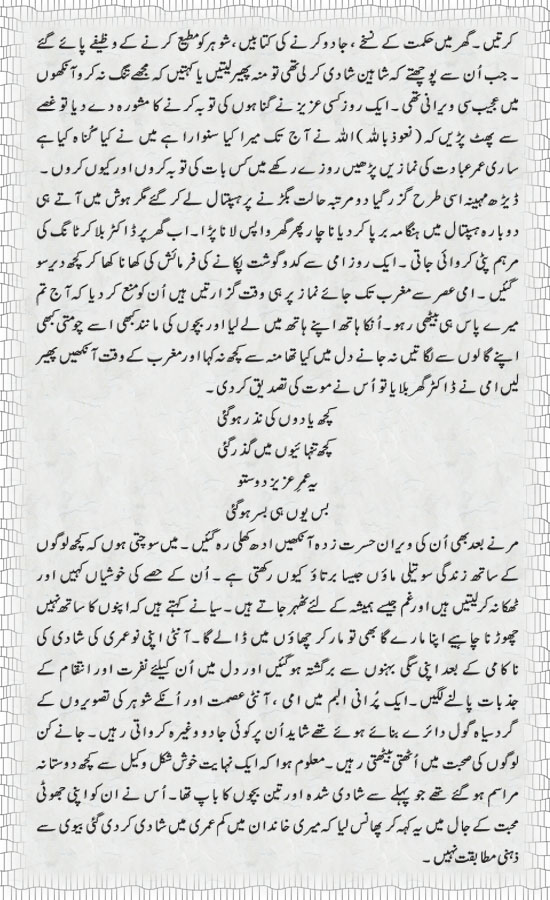 کرتیں۔ گھر میں حکمت کے نسخے، جادو کرنے کی کتابیں، شوہر کو مطیع کرنے کے وظیفے پائے گئے
۔ جب اُن سے پوچھتے کہ شاہین شادی کر لی تھی تو منہ پھیر لیتیں یا کہتیں کہ مجھے تنگ نہ کرو آنکھوں
میں عجیب سی ویرانی تھی۔ ایک روز کسی عزیز نے گناہوں کی توبہ کرنے کا مشورہ دے دیا تو غصے
سے پھٹ پڑیں کہ (نعوذباللہ) اللہ نے آج تک میرا کیا سنوارا ہے میں نے کیا گناہ کیا ہے
ساری عمر عبادت کی نمازیں پڑھیں روزے رکھے میں کس بات کی توبہ کروں اور کیوں کروں۔
ڈیڑھ مہینہ اسی طرح گزر گیا دو مرتبہ حالت بگڑنے پر ہسپتال لے کر گئے مگر ہوش میں آتے ہی
دوبارہ ہسپتال میں ہنگامہ برپا کر دیا ناچار پھر گھر واپس لانا پڑا۔ اب گھر پر ڈاکٹر بلا کر ٹانگ کی
مرہم پٹی کروائی جاتی۔ ایک روز امی سے کدو گوشت پکانے کی فرمائش کی کھانا کھا کر کچھ دیر سو
گئیں۔ امی عصر سے مغرب تک جائے نماز پر ہی وقت گزارتیں ہیں اُن کو منع کر دیا کہ آج تم
میرے پاس ہی بیٹھی رہو۔ اُنکا ہاتھ اپنے ہاتھ میں لے لیا اور بچوں کی مانند کبھی اسے چومتی کبھی
اپنے گالوں سے لگاتیں نہ جانے دل میں کیا تھا منہ سے کچھ نہ کہا اور مغرب کے وقت آنکھیں پھیر
لیں امی نے ڈاکٹر گھر بلایا تو اُس نے موت کی تصدیق کر دی۔
کچھ یادوں کی نذر ہو گئی
کچھ تنہائیوں میں گذر گئی
یہ عمرِ عزیز دوستو
بس یوں ہی بسر ہو گئی
مرنے بعد بھی اُن کی ویران حسرت زدہ آنکھیں ادھ کھلی رہ گئیں۔ میں سوچتی ہوں کہ کچھ لوگوں
کے ساتھ زندگی سوتیلی ماؤں جیسا برتاؤ کیوں رکھتی ہے۔ اُن کے حصے کی خوشیاں کہیں اور
ٹھکانا نہ کر لیتیں ہیں اور غم جیسے ہمیشہ کے لئے ٹھہر جاتے ہیں۔ سیانے کہتے ہیں کہ اپنوں کا ساتھ نہیں
چھوڑنا چاہیے اپنا مارے گا بھی تو مار کر چھاؤں میں ڈالے گا۔ آنٹی اپنی نوعمری کی شادی کی
ناکامی کے بعد اپنی سگی بہنوں سے برگشتہ ہو گئیں اور دل میں اُن کیلئے نفرت اور انتقام کے
جذبات پالنے لگیں۔ ایک پُرانی البم میں امی، آنٹی عصمت اور اُنکے شوہر کی تصویروں کے
گرد سیاہ گول دائرے بنائے ہوئے تھے شاید اُن پر کوئی جادو وغیرہ کرواتی رہیں۔ جانے کن
لوگوں کی صحبت میں اُٹھتی بیٹھتی رہیں۔ معلوم ہوا کہ ایک نہایت خوش شکل وکیل سے کچھ دوستانہ
مراسم ہو گئے تھے جو پہلے سے شادی شدہ اور تین بچوں کا باپ تھا۔ اُس نے ان کو اپنی جھوٹی
محبت کے جال میں یہ کہہ کر پھانس لیا کہ میری خاندان میں کم عمری میں شادی کر دی گئی بیوی سے
ذہنی مطابقت نہیں۔